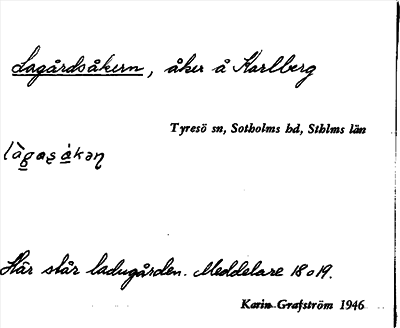 Lagårdsåkern, åker å Karlberg
Tyresö sn, Sotholms hd, Sthlms län
Här står ladugården. Meddelare 18 o 19.
Karin Grafström 1946